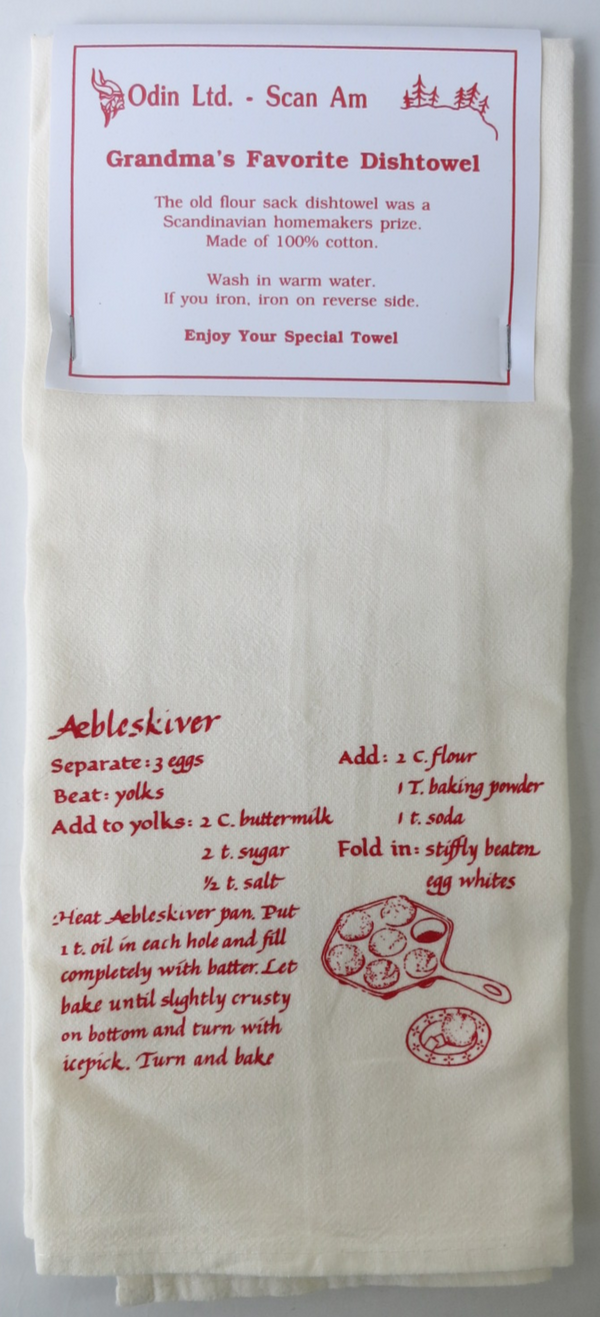 Odin Ltd. - Scan Am
Grandma's Favorite Dishtowel
The old flour sack dishtowel was a
Scandinavian homemakers prize.
Made of 100% cotton.
Wash in warm water.
If you iron, iron on reverse side.
Enjoy Your Special Towel
Aebleskiver
Separate: 3 eggs
Beat: yolks
Add to yolks: 2 C. buttermilk
2 t. sugar
½ t. salt
Add: 2 C. flour
1 T. baking powder
1 t. soda
Fold in: stiffly beaten
egg whites
:Heat Aebleskiver pan. Put
1 t. oil in each hole and fill
completely with batter. Let
bake until slightly crusty
on bottom and turn with
icepick. Turn and bake